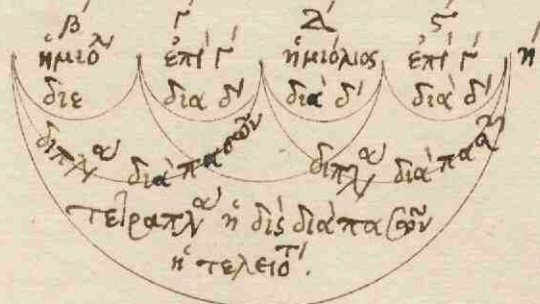 β Γ Δ ς
ἡμιο ἐπιΓ ἡμιόλιος ἐπιΓ ἡ
διε δια δ' δια δ' δια δ'
διπλ διαπασῶν διπλ διαπασ
τετραπλ ἡ δὶς διαπασῶν
ἡ τελειοτ.